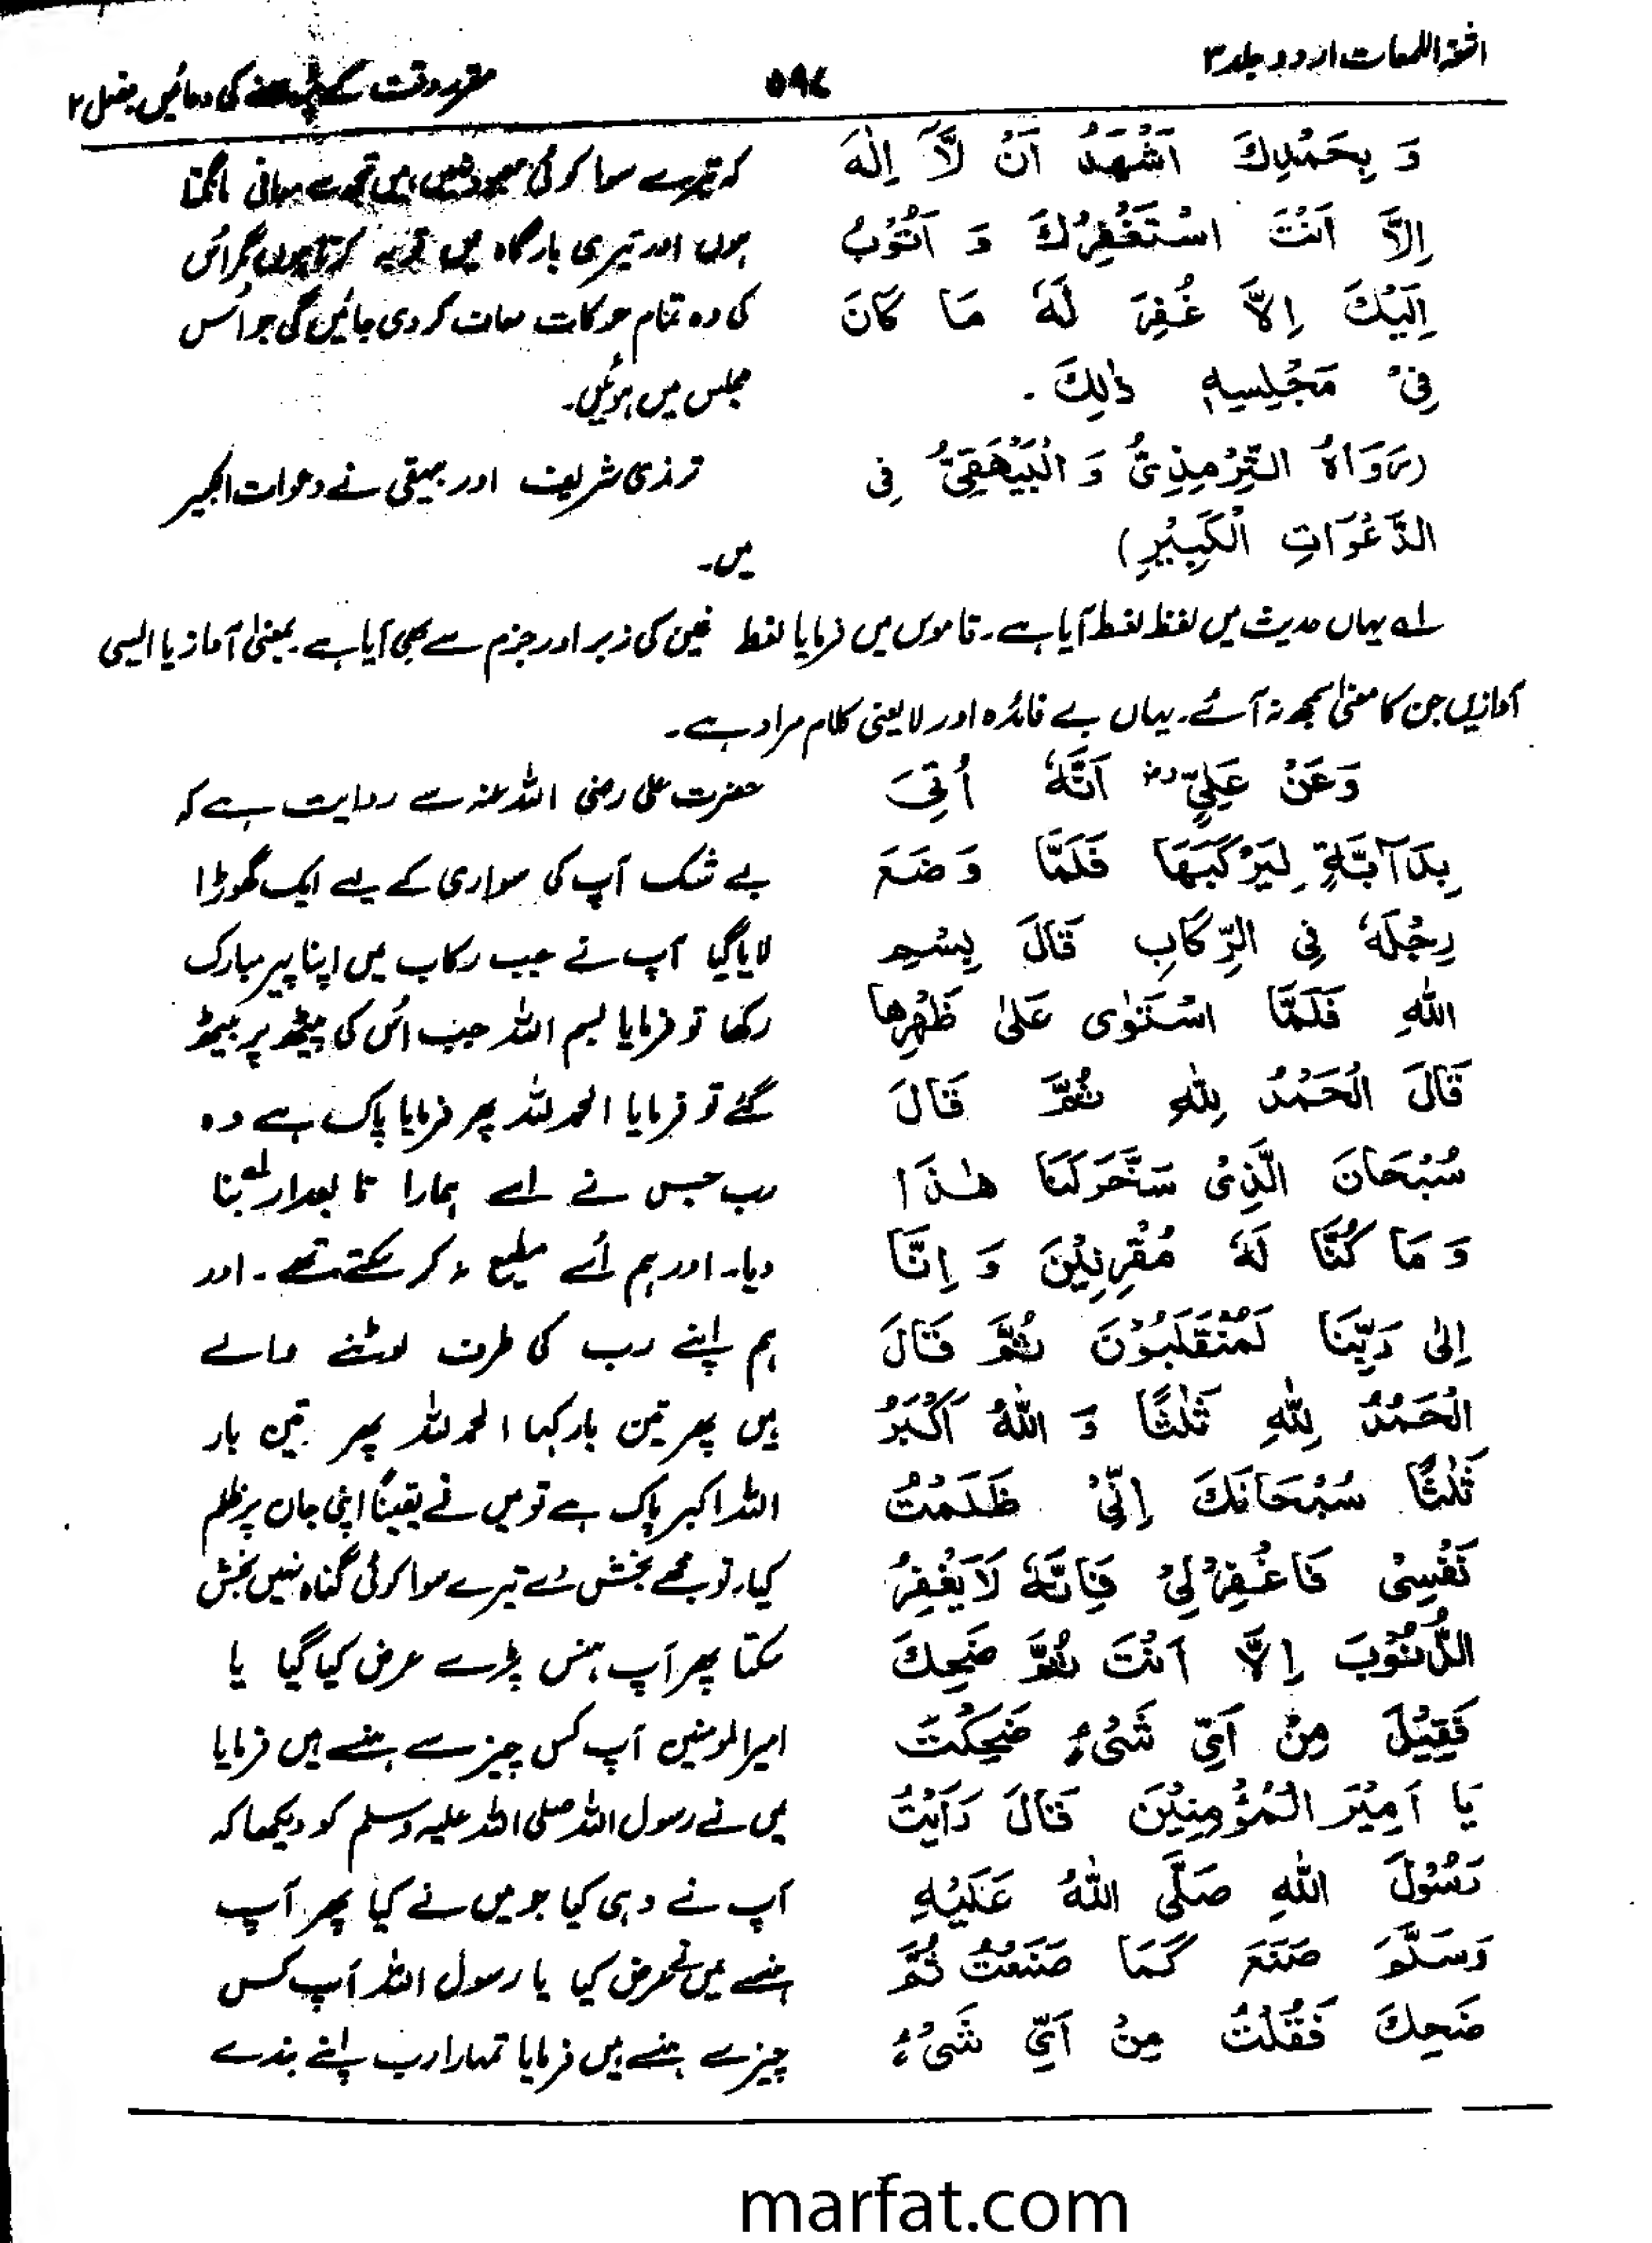 اشعۃ اللمعات اردو جلد ۳
۵۹۷
مقررہ وقت کے پڑھنے کی دعائیں، فصل ۲
وَ بِحَمْدِكَ اَشْهَدُ اَنْ لَّآ اِلٰهَ
اِلَّا اَنْتَ اسْتَغْفِرُكَ وَ اَتُوْبُ
اِلَيْكَ اِلَّا غُفِرَ لَهٗ مَا كَانَ
فِيْ مَجْلِسِهٖ ذٰلِكَ ۔
(رَوَاهُ التِّرْمِذِيُّ وَ الْبَيْهَقِيُّ فِي
الدَّعْوَاتِ الْكَبِيْرِ)
کہ تیرے سوا کوئی معبود نہیں، میں تجھ سے معافی مانگتا
ہوں اور تیری بارگاہ میں توبہ کرتا ہوں مگر اس
کی وہ تمام حرکات معاف کر دی جائیں گی جو اُس
مجلس میں ہوئیں۔
ترمذی شریف اور بیہقی نے دعوات الکبیر
میں۔
لے یہاں حدیث میں لفظ لغط آیا ہے۔ قاموس میں فرمایا لغط غین کی زبر اور جزم سے بھی آیا ہے۔ بمعنیٰ آواز یا ایسی
آوازیں جن کا معنیٰ سمجھ نہ آئے۔ یہاں بے فائدہ اور لا یعنی کلام مراد ہے۔
وَعَنْ عَلِيٍّ رض اَنَّهٗ اُتِيَ
بِدَآبَّةٍ لِيَرْكَبَهَا فَلَمَّا وَضَعَ
رِجْلَهٗ فِي الرِّكَابِ قَالَ بِسْمِ
اللّٰهِ فَلَمَّا اسْتَوٰى عَلٰى ظَهْرِهَا
قَالَ الْحَمْدُ لِلّٰهِ ثُمَّ قَالَ
سُبْحَانَ الَّذِيْ سَخَّرَ لَنَا هٰذَا
وَ مَا كُنَّا لَهٗ مُقْرِنِيْنَ وَ اِنَّا
اِلٰى رَبِّنَا لَمُنْقَلِبُوْنَ ثُمَّ قَالَ
الْحَمْدُ لِلّٰهِ ثَلٰثًا وَ اللّٰهُ اَكْبَرُ
ثَلٰثًا سُبْحَانَكَ اِنِّيْ ظَلَمْتُ
نَفْسِيْ فَاغْفِرْ لِيْ فَاِنَّهٗ لَا يَغْفِرُ
الذُّنُوْبَ اِلَّا اَنْتَ ثُمَّ ضَحِكَ
فَقِيْلَ مِنْ اَيِّ شَيْءٍ ضَحِكْتَ
يَا اَمِيْرَ الْمُؤْمِنِيْنَ قَالَ رَاَيْتُ
رَسُوْلَ اللّٰهِ صَلَّى اللّٰهُ عَلَيْهِ
وَسَلَّمَ صَنَعَ كَمَا صَنَعْتُ ثُمَّ
ضَحِكَ فَقُلْتُ مِنْ اَيِّ شَيْءٍ
حضرت علی رضی اللہ عنہ سے روایت ہے کہ
بے شک آپ کی سواری کے لیے ایک گھوڑا
لایا گیا آپ نے جب رکاب میں اپنا پیر مبارک
رکھا تو فرمایا بسم اللہ جب اُس کی پیٹھ پر بیٹھ
گئے تو فرمایا الحمد للہ پھر فرمایا پاک ہے وہ
رب جس نے اسے ہمارا تابعدار لے بنا
دیا۔ اور ہم اُسے مطیع نہ کر سکتے تھے۔ اور
ہم اپنے رب کی طرف لوٹنے والے
ہیں پھر تین بار کہا الحمد للہ پھر تین بار
اللہ اکبر پاک ہے تو میں نے یقیناً اپنی جان پر ظلم
کیا، تو مجھے بخش دے تیرے سوا کوئی گناہ نہیں بخش
سکتا پھر آپ ہنس پڑے عرض کیا گیا یا
امیر المومنین آپ کس چیز سے ہنسے ہیں فرمایا
میں نے رسول اللہ صلی اللہ علیہ وسلم کو دیکھا کہ
آپ نے وہی کیا جو میں نے کیا پھر آپ
ہنسے میں نے عرض کیا یا رسول اللہ آپ کس
چیز سے ہنسے ہیں فرمایا تمہارا رب اپنے بندے
marfat.com